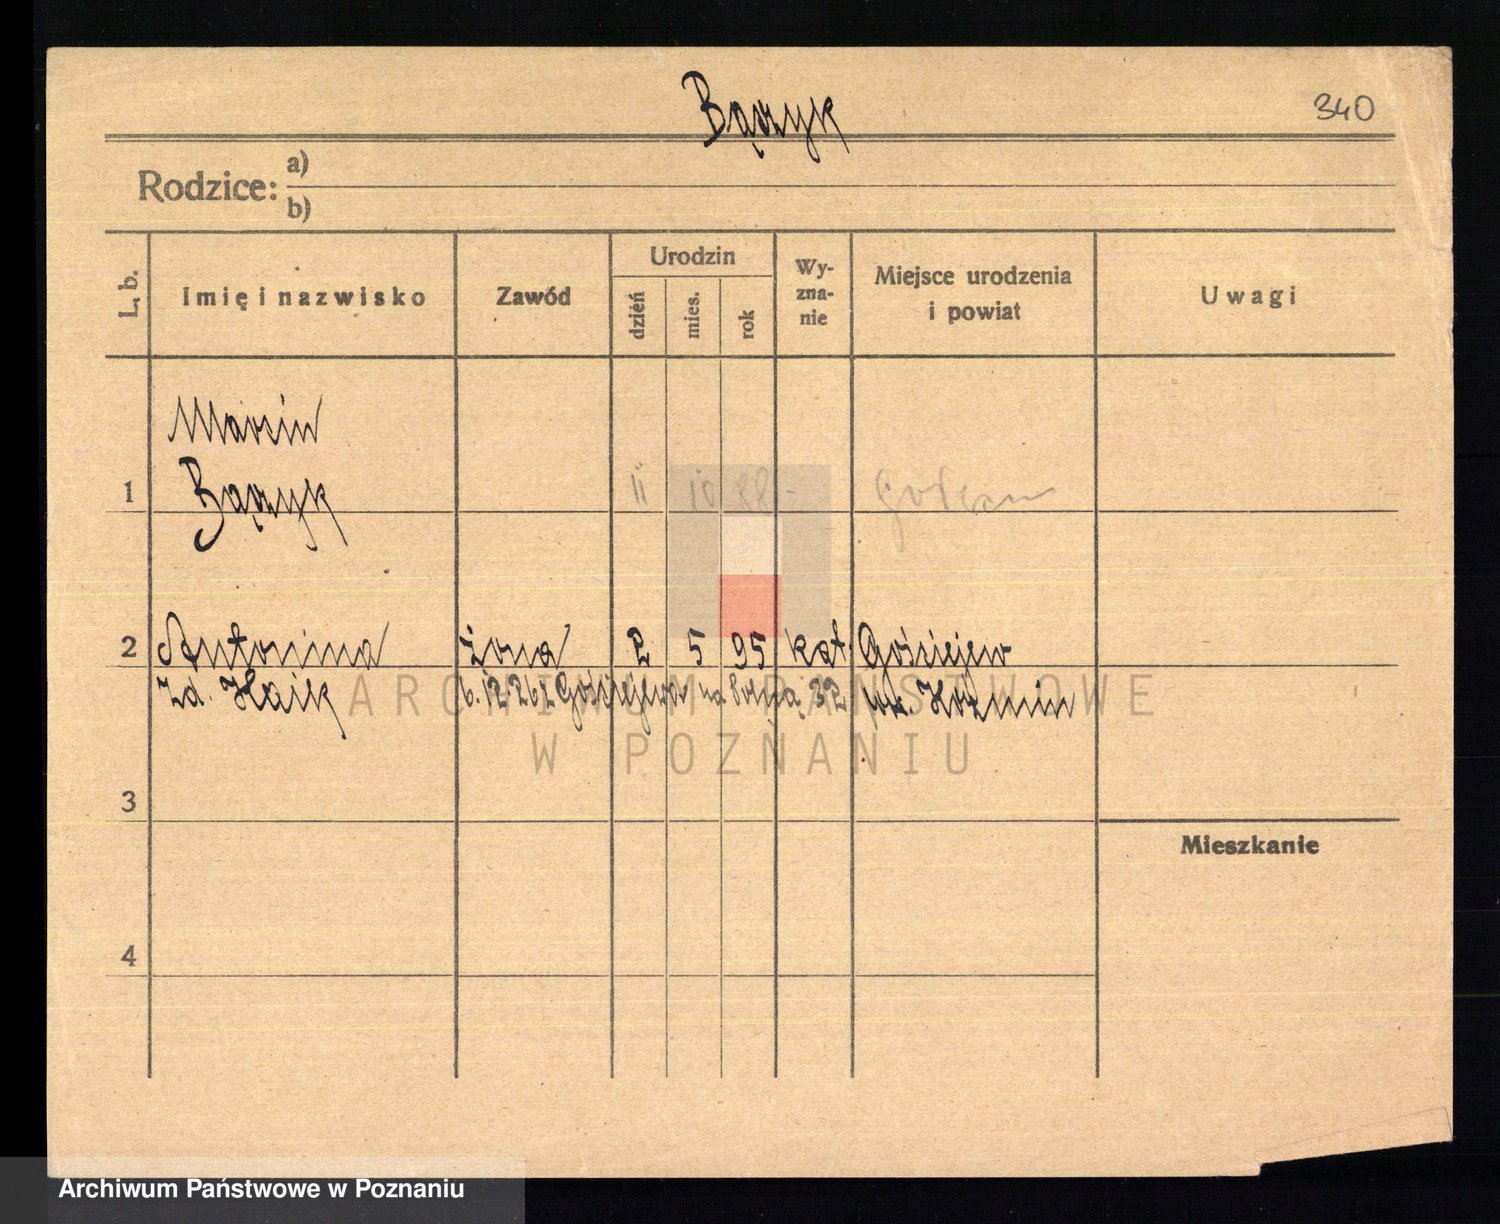 Bączyk
340
Rodzice:
a)
b)
L. b.
Imię i nazwisko
Zawód
Urodzin
dzień
mies.
rok
Wy-
zna-
nie
Miejsce urodzenia
i powiat
Uwagi
Marcin
1 Bączyk 11 10 88
2 Antonina żona 2 5 95 kat. Gościejew
zd. Haik 6.12.26 z Gościejewa na Polną 32. pow. Koźmin
3
Mieszkanie
4
ARCHIWUM PAŃSTWOWE
W POZNANIU
Archiwum Państwowe w Poznaniu